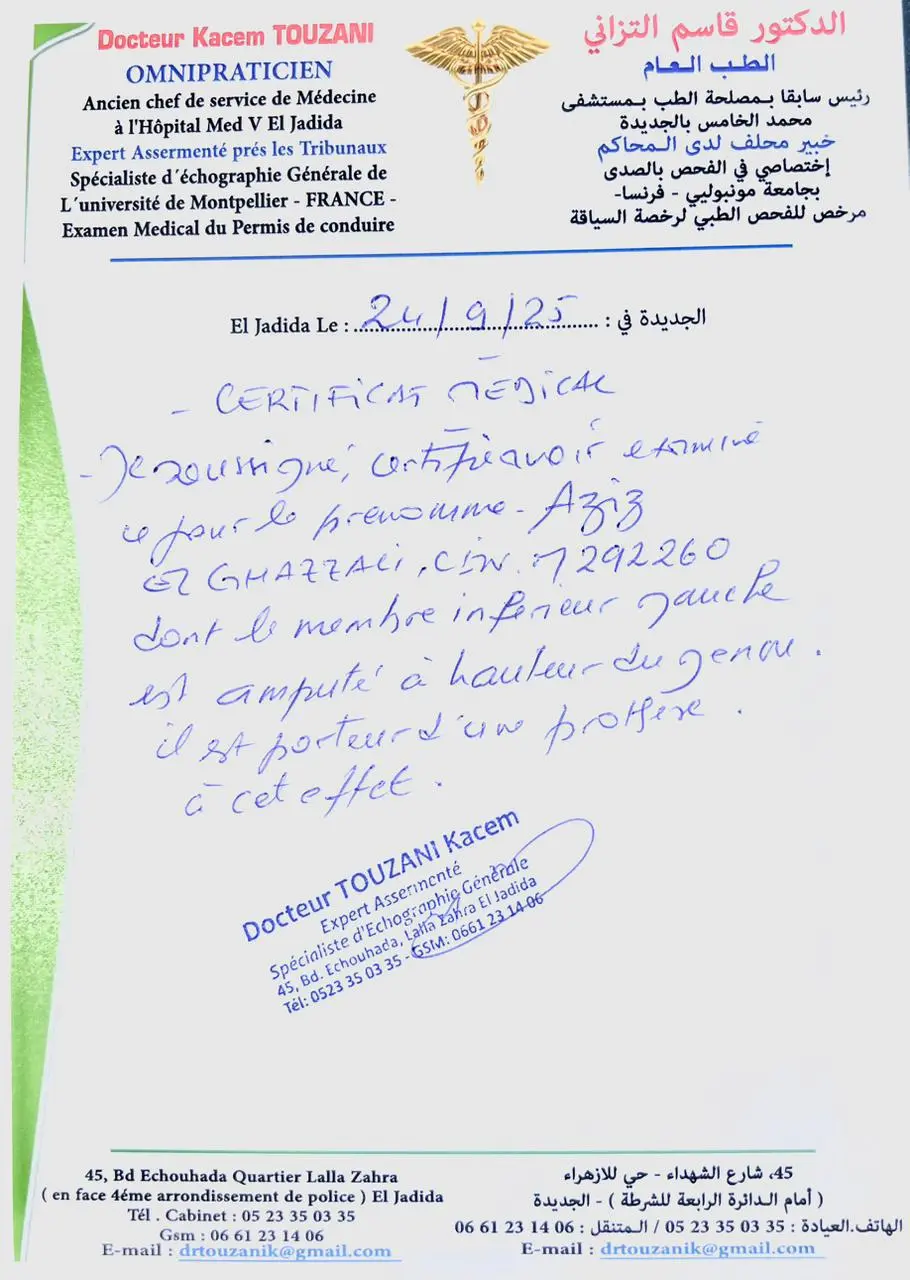 Docteur Kacem TOUZANI
OMNIPRATICIEN
Ancien chef de service de Médecine
à l'Hôpital Med V El Jadida
Expert Assermenté prés les Tribunaux
Spécialiste d´échographie Générale de
L´université de Montpellier - FRANCE -
Examen Medical du Permis de conduire
الدكتور قاسم التزاني
الطب العام
رئيس سابقا بمصلحة الطب بمستشفى
محمد الخامس بالجديدة
خبير محلف لدى المحاكم
إختصاصي في الفحص بالصدى
بجامعة مونبوليي - فرنسا-
مرخص للفحص الطبي لرخصة السياقة
El Jadida Le : 24/9/25 الجديدة في :
- CERTIFICAT MEDICAL
- Je soussigné, certifie avoir examiné
ce jour le prénommé - Aziz
EL GHAZZALI, CIN. M 292260
dont le membre inférieur gauche
est amputé à hauteur du genou.
il est porteur d'une prothèse.
à cet effet.
Docteur TOUZANI Kacem
Expert Assermenté
Spécialiste d'Echographie Générale
45, Bd. Echouhada, Lalla Zahra El Jadida
Tél: 0523 35 03 35 - GSM: 0661 23 14 06
45, Bd Echouhada Quartier Lalla Zahra
( en face 4éme arrondissement de police ) El Jadida
Tél . Cabinet : 05 23 35 03 35
Gsm : 06 61 23 14 06
E-mail : drtouzanik@gmail.com
45، شارع الشهداء - حي للازهراء
( أمام الدائرة الرابعة للشرطة ) - الجديدة
الهاتف.العيادة : 05 23 35 03 35 / المتنقل : 06 61 23 14 06
E-mail : drtouzanik@gmail.com